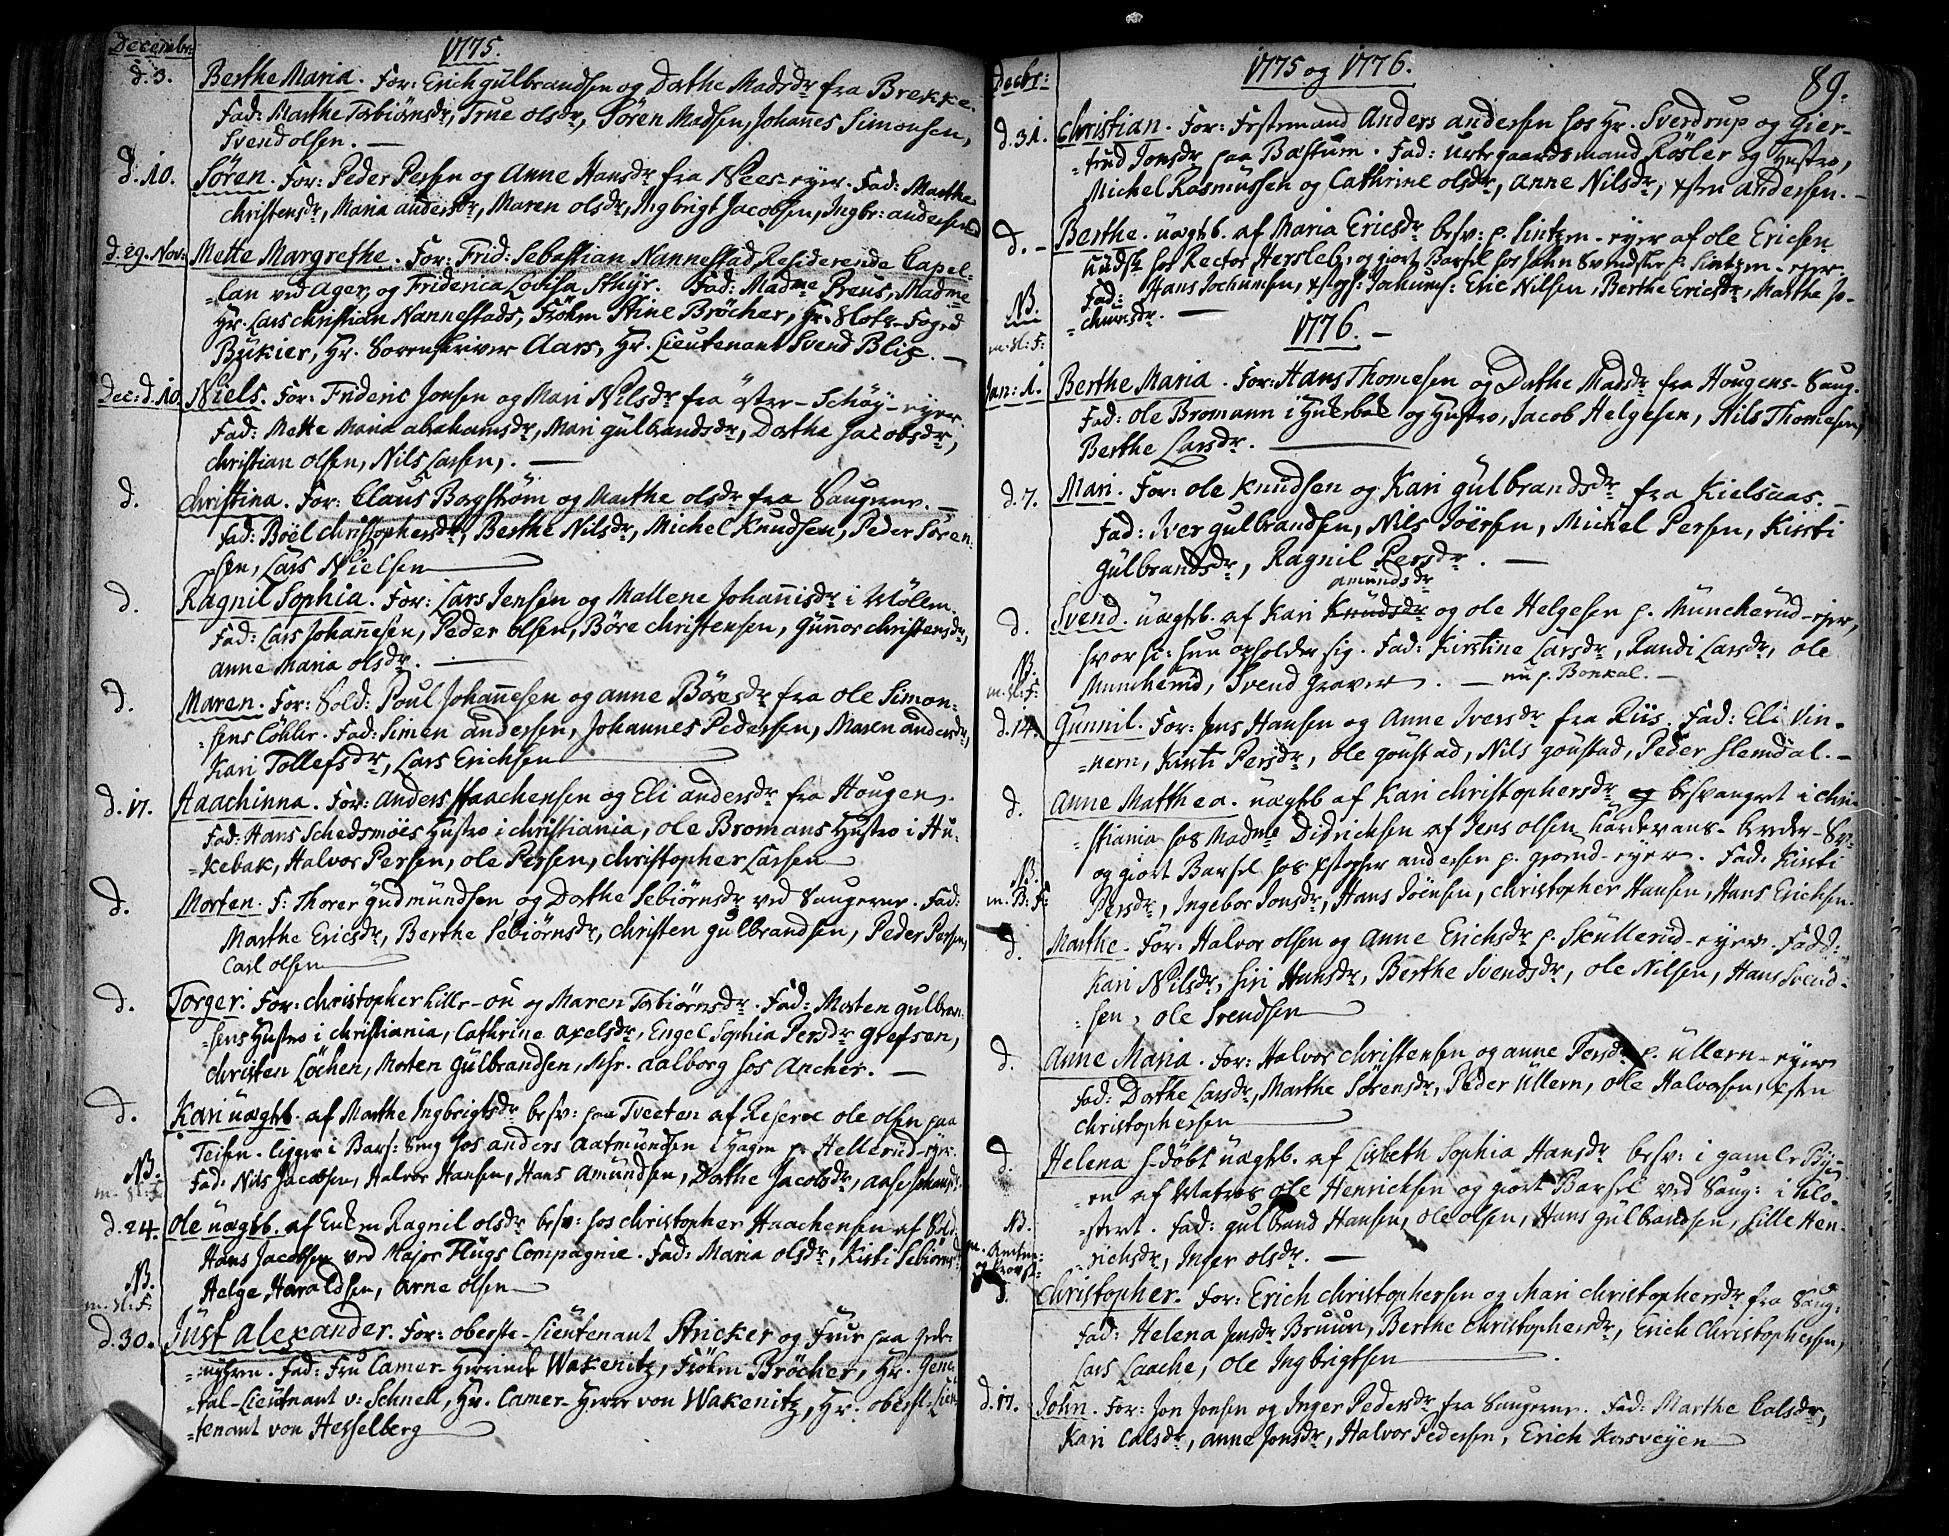 Decembr:
1775.
d. 3. Berthe Maria. For: Erich Gulbrandsen og Dorthe Madsdr fra Brekke.
Fad: Marthe Torbiörnsdr, True olsdr, Sören Madsen, Johanes Simonsen,
Svend olsen. —
d. 10. Sören. For: Peder Persen og Anne Hansdr fra Nees-eyer. Fad: Marthe
Christensdr, Maria andersdr, Maren olsdr, Ingbrigt Jacobsen, Ingbr: andersen
d. 29. Nov: Mette Margrethe. For: Frid: Sebastian Nannestad, Residerende Capel-
=lan ved Ager, og Friderica Lovisa Sthyr. Fad: Madme Preus, Madme
Hr. Lars Christian Nannestads, Frökn Stine Bröcher, Hr. Slots-Foged
Bükier, Hr. Sorenskriver Aars, Hr. Lieutenant Svend Blix. —
Dec: d. 10. Niels. For: Frideric Jonsen og Mari Nilsdr fra öster-Schöy-eyer
Fad: Mette Maria abrahamsdr, Mari gulbrandsdr, Dorthe Jacobsdr,
christian olsen, Nils Larsen,. —
d. Christina. For: Claus Bogström og Marthe olsdr fra Saugerne. —
Fad: Böel christophersdr, Berthe Nilsdr, Michel Knudsen, Peder Sören-
=sen, Lars Nielsen
d. Ragnil Sophia. For: Lars Jensen og Mallene Johannisdr i Möllen.
Fad: Lars Johannesen, Peder olsen, Böre christensen, Gunnor christensdr,
anne Maria olsdr. —
d. Maren. For: Sold: Poul Johannesen og anne Böresdr fra ole Simon-
=sens Lökke. Fad: Simen andersen, Johannes Pedersen, Maren andersdr,
Kari Tollefsdr, Lars Erichsen
d. 17. Haachinna. For: anders Haachensen og Eli andersdr fra Hougen.
Fad: Hans Schedsmöes Hustro i christiania, ole Bromans Hustro i Hu-
=kebak, Halvor Persen, ole Persen, christopher Larsen
d. Morten. F: Thorer Gudmündsen og Dorthe Sebiörnsdr ved Saugerne. Fad:
Marthe Ericsdr, Berthe Sebiörnsdr, christen gulbrandsen, Peder Persen,
Carl olsen
d. Torger. For: christopher Lille-ou og Maren Torbiörnsdr. Fad: Morten gulbran-
=sens Hustro i christiania, Cathrine axelsdr, Engel Sophia Persdr Grefsen,
christen Löchen, Morten Gulbrandsen, Msr. aalborg hos Ancher. —
d. Kari uægtb. af Marthe Ingbrigtsdr besv: paa Tveeten af Reserve ole olsen paa
Teisen. ligger i Bars: Seng hos anders Aatmundsen i Hagen p. Hellerud-eyer.
NB. Fad: Nils Jacobsen, Halvor Hansen, Hans Amundsen, Dorthe Jacobsdr, aase Johansdr
m. Sl: F.
d. 24. Ole uægtb. af Enken Ragnil olsdr besv: hos christopher Haachensen af Sold:
Hans Jacobsen ved Major Flugs Compagnie. Fad: Maria olsdr, Kisti Sebiörnsdr
NB. Helge Haraldsen, Arne olsen
m. Sl: F.
d. 30. Just Alexander. For: oberste-Lieutenant Stricker og Frue paa
Fad: Fru Camer-Herrinde Wakenitz, Frökn Bröcher, Hr. Gene-
=ral-Lieutnant v: Schnell, Hr. Camer-Herre von Wakenitz, Hr. oberst-Lieu-
=tenant von Hesselberg
Decbr:
1775 og 1776.
89.
d. 31. Christian. For: Festemand Anders andersen hos Hr. Sverdrup og Gier-
=trud Jonsdr paa Bastum. Fad: urtegaardsmand Rösler og Hustro,
Michel Rasmussen og Cathrine olsdr, Anne Nilsdr, xsten andersen. —
d. - Berthe. uægtb. af Maria Ericsdr besv: p. Sintzen-eyer af ole Ericsen
Kudsk hos Rector Hersleb, og giort Barsel hos John Svendsker p. Sintzen-eyer.
NB. Fad: Hans Jochumsen, xstoph: Jochums: Eric Nilsen, Berthe Ericsdr, Marthe Jo-
=chumsdr. —
m. Sl: F:
1776. —
Jan: 1. Berthe Maria. For: Hans Thomesen og Dorthe Madsdr fra Hougens-Saug.
Fad: ole Bromann i Hukebak og Hustro, Jacob Helgesen, Nils Thomesen,
Berthe Larsdr.
d. 7. Mari. For: ole Knudsen og Kari gulbrandsdr fra Kielsaas. —
Fad: Iver gulbrandsen, Nils Joersen, Michel Persen, Kirsti
Gülbrandsdr, Ragnil Persdr. —
amundsdr
d. Svend. uægtb. af Kari Knüdsdr og ole Helgesen p. Müncherud-ejer,
hvor hun opholder sig. Fad: Kirstine Larsdr, Randi Larsdr, ole
NB. Muncherud, Svend Graver. — nu p. Bonkal. —
m. Sl: F:
d. 14. Gunnil. For: Jens Hansen og Anne Iversdr fra Riis. Fad: Eli Vin-
=nern, Kirsti Persdr, ole goustad, Nils goustad, Peder Slemdal. —
d. Anne Matthea. uægtb af Kari christophersdr og besvangret i chri-
=stiania hos Madme Didricksen af Jens olsen
og giort Barsel hos xstopher andersen p. eyer. Fad: Kirsti
NB. Persdr, Ingebor Jonsdr, Hans Joensen, christopher Hansen, Hans Erichsen.
m. B: F:
d. Marthe. For: Halvor olsen og Anne Erichsdr p. Sküllerud-eyer. Fadd:
Kari Nilsdr, Siri Hansdr, Berthe Svendsdr, ole Nilsen, Hans Svend-
=sen, ole Svendsen
d. Anne Maria. For: Halvor christensen og anne Persdr p. üllern-eyer
Fad: Dorthe Larsdr, Marthe Sörensdr, Peder üllern, ole Halvorsen, xsten
christophersen
d. Helena H-döbt uægtb. af Lisbeth Sophia Hansdr besv: i gamle Bye-
=en af Matros ole Henricksen og giort Barsel ved Saug: i Klo-
=steret. Fad: gulbrand Hansen, ole olsen, Hans gulbrandsen, Sille Hen-
NB. =richsdr, Inger olsdr. —
d. Christopher. For: Erich christophersen og Mari christophersdr fra Saug:
Fad: Helena Jensdr Bruun, Berthe Christophersdr, Erich Christophersen,
Lars Laache, ole Ingbrigtsen
d. 17. John. For: Jon Jonsen og Inger Pedersdr fra Saugerne. Fad: Marthe Calsdr,
Kari Calsdr, anne Jonsdr, Halvor Pedersen, Erich Korsveyen